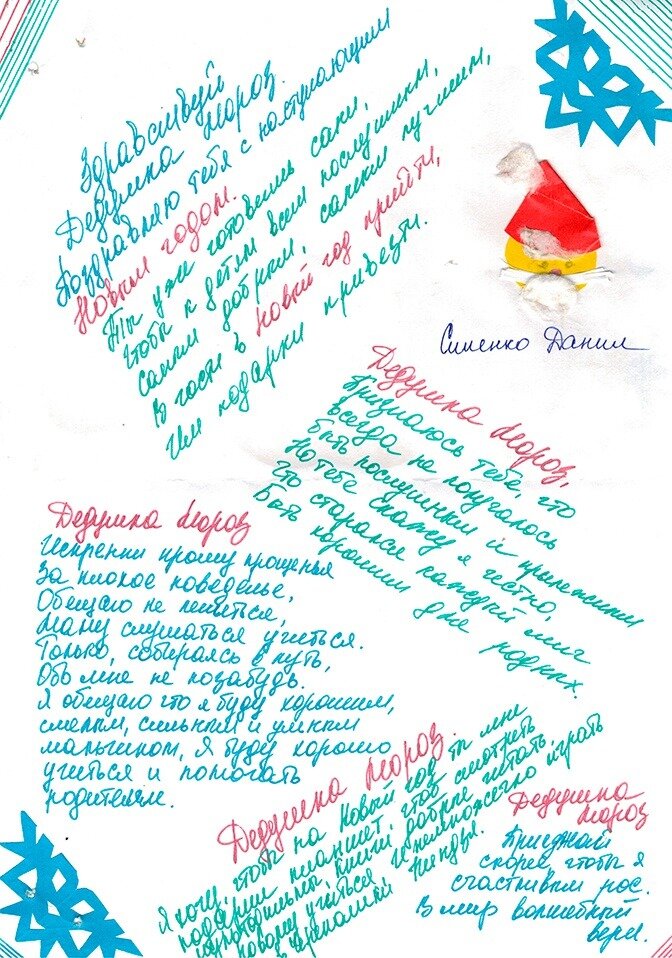 Здравствуй
Дедушка Мороз.
Поздравляю тебя с наступающим
Новым годом.
Ты уже готовишь сани,
Чтобы к детям всем послушным,
Самым добрым, самым лучшим,
В гости в Новый год прийти,
Им подарки привезти.
Сименко Данил
Дедушка Мороз,
Признаюсь тебе, что
Всегда не получалось
Быть послушным и прилежным
Но тебе скажу я честно,
Что старался каждый миг
Быть хорошим для родных.
Дедушка Мороз
Искренни прошу прощенья
За плохое поведенье,
Обещаю не лениться,
Маму слушаться учиться.
Только, собираясь в путь,
Обо мне не позабудь.
Я обещаю что я буду хорошим,
смелым, сильным и умным
мальчиком, Я буду хорошо
учиться и помогать
родителям.
Дедушка Мороз.
Я хочу, чтобы на Новый год ты мне
подарил планшет, чтоб смотреть
мультфильмы, книги добрые читать,
новому учиться. И немножечко играть
в
Дедушка
Мороз
Приезжай
скорее, чтобы я
счастливым рос.
В мир волшебный
верил.